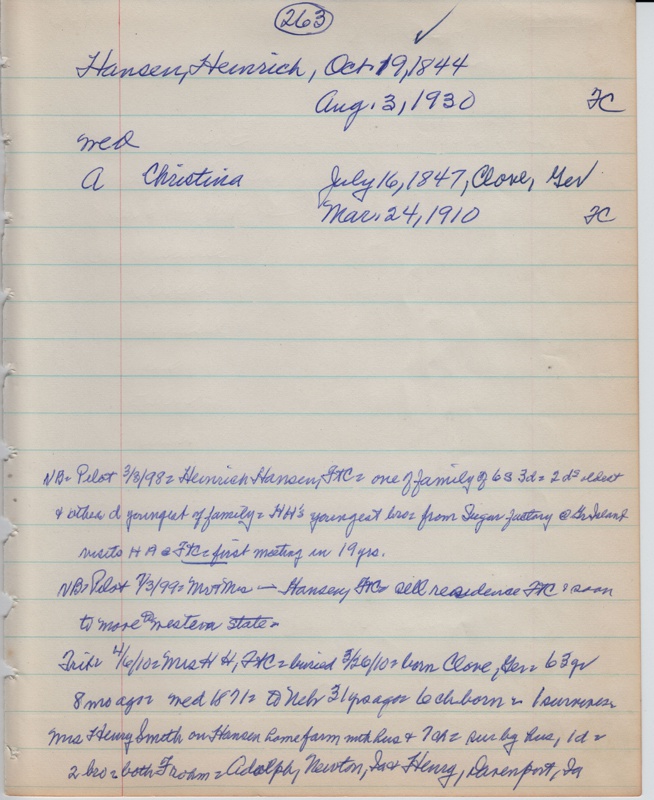 263
Hansen, Heinrich, Oct. 19, 1844
Aug. 3, 1930 FC
wed
A Christina July 16, 1847, Clove, Ger
Mar. 24, 1910 FC
NB= Pilot 3/8/98= Heinrich Hansen, FtC= one of family of 6s 3d= 2 ds oldest
& other d youngest of family= HH's youngest bro= from Sugar factory @ Gr Island
visits H H @ FtC= first meeting in 19 yrs.
NB= Pilot 1/3/99= Mr & Mrs — Hansen, FtC= sell residence FtC & soon
to move to western state=
4/6/10= Mrs H H, FtC= buried 3/26/10= born Clove, Ger= 63 yr
8 mo ago= wed 1871= to Nebr 31 yrs ago= 6 ch born= 1 survives=
Mrs Henry Smith on Hansen home farm with hus & 7 ch= sur by hus, 1d=
2 bro= both Frahm= Adolph, Newton, Ia & Henry, Davenport, Ia